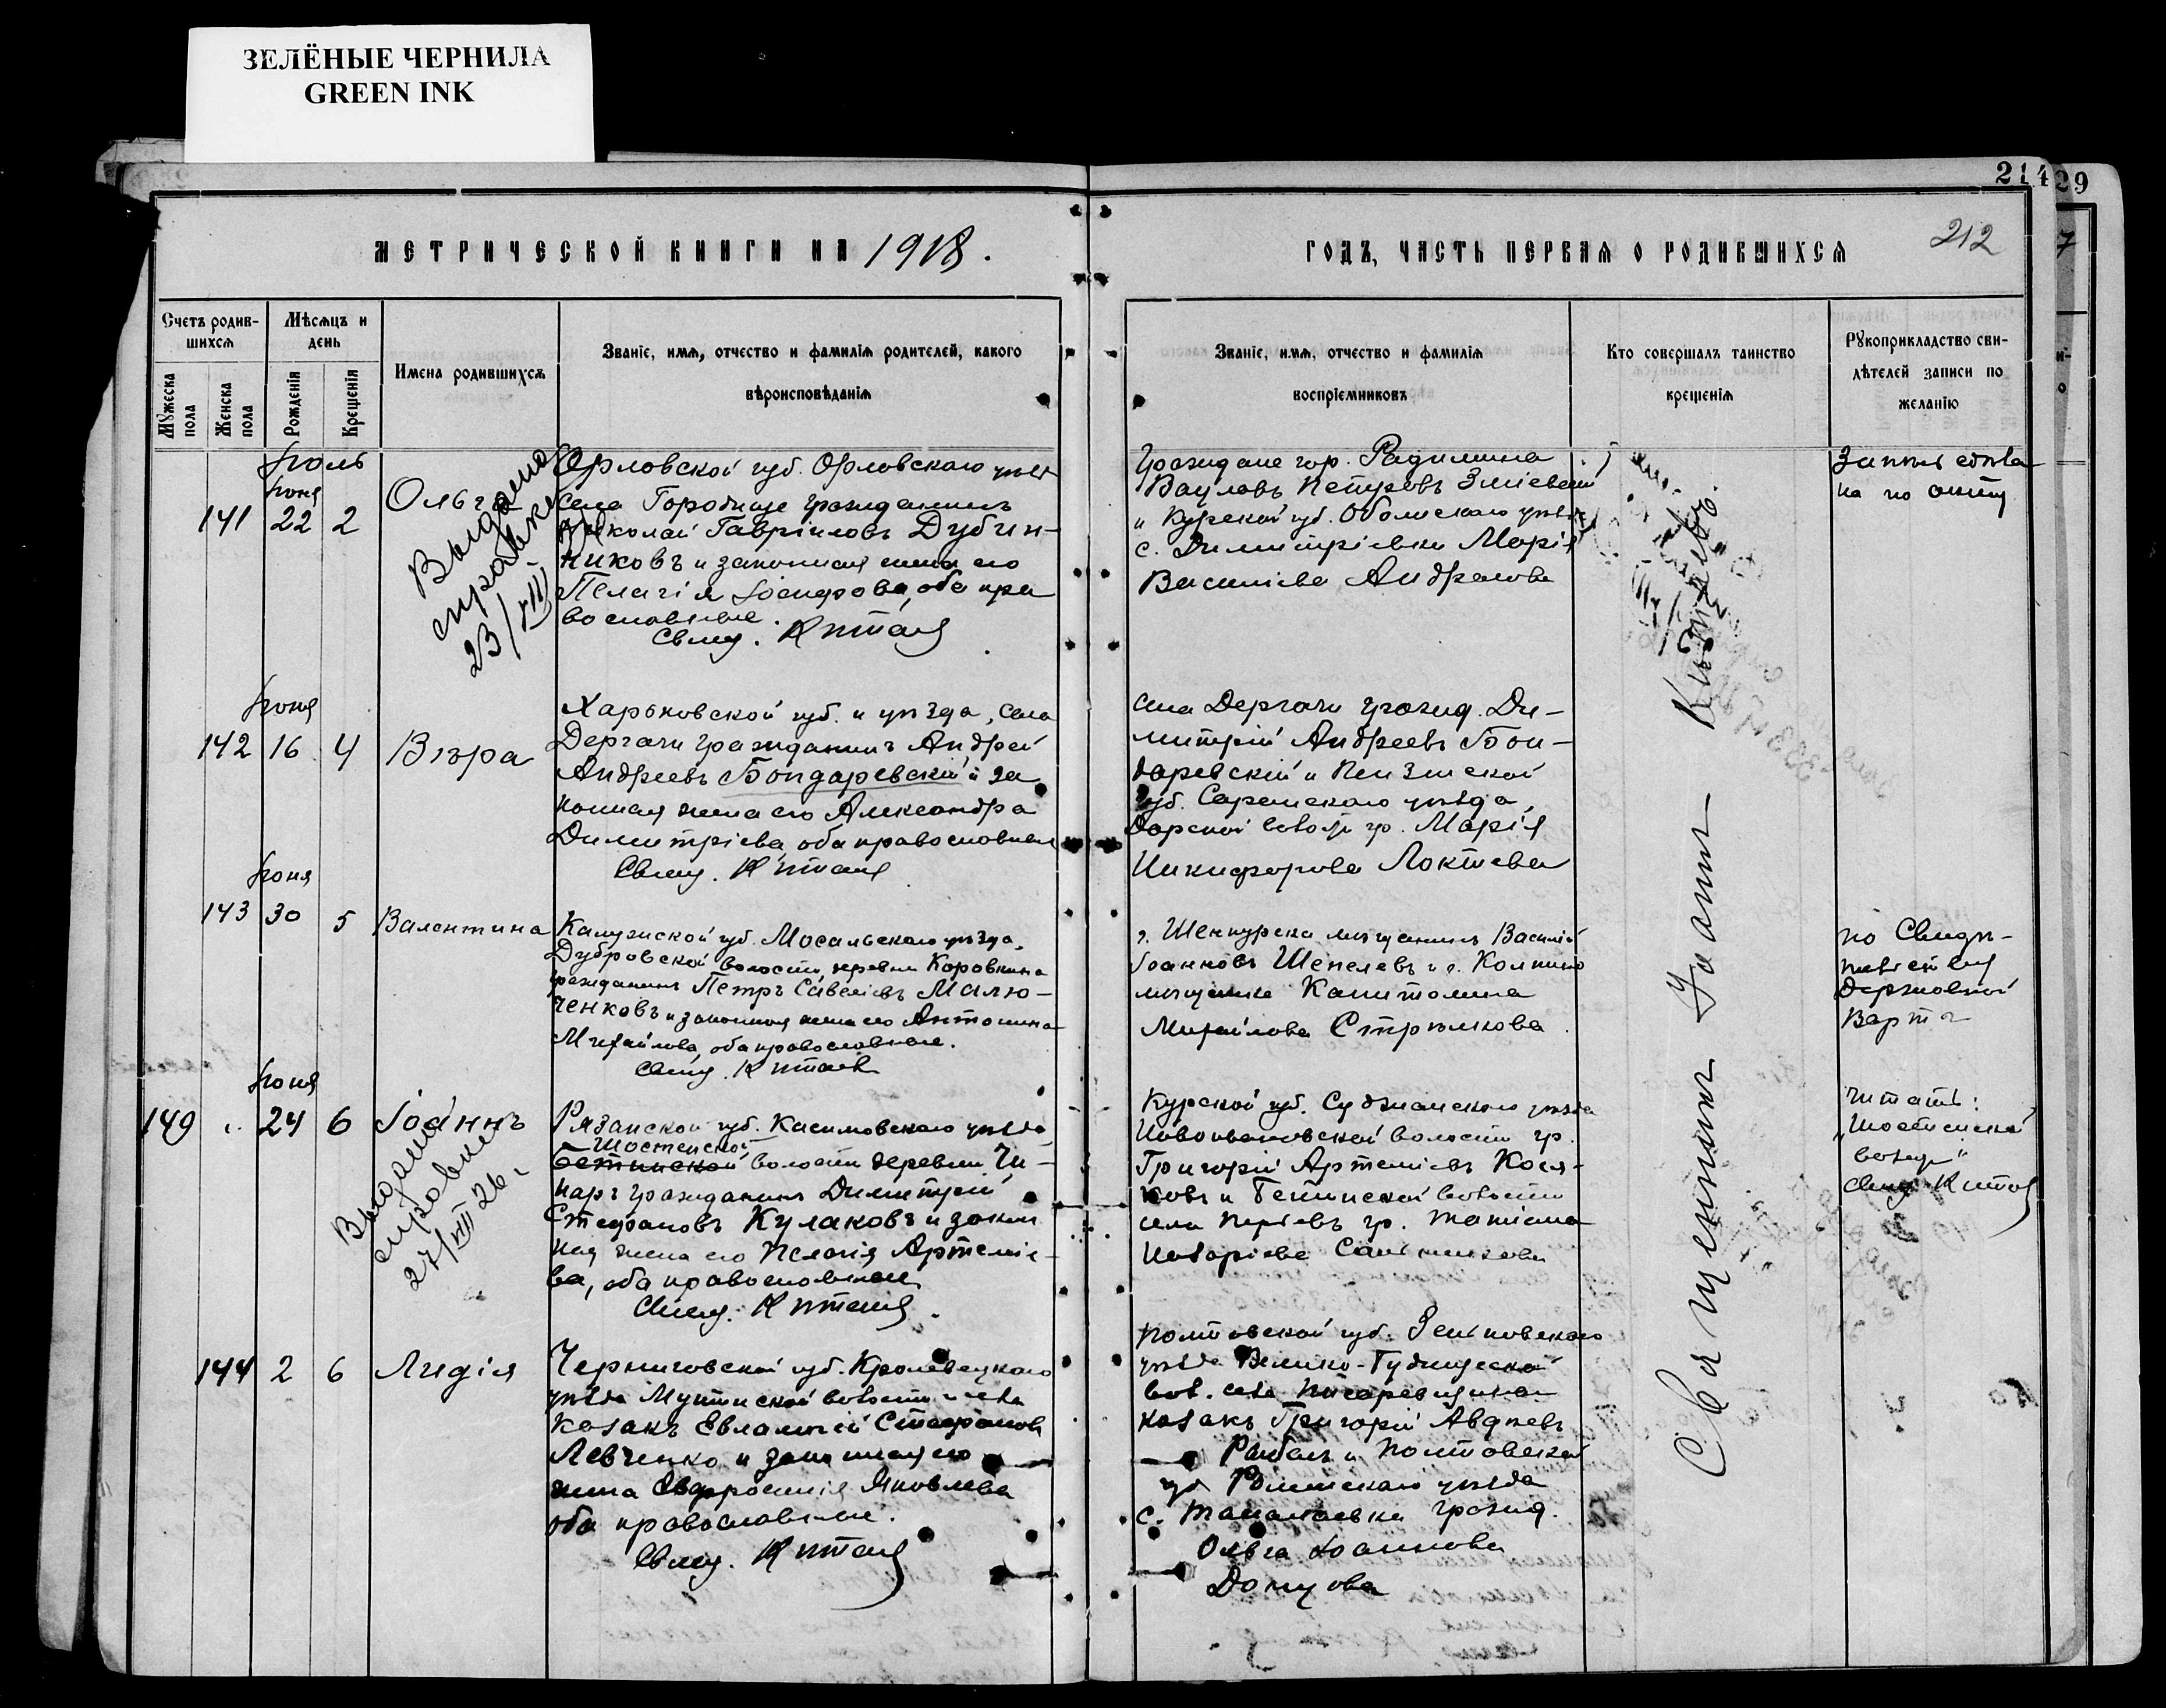 ЗЕЛЁНЫЕ ЧЕРНИЛА
GREEN INK
214
29
212
МЕТРИЧЕСКОЙ КНИГИ НА 1918.
ГОДЪ, ЧАСТЬ ПЕРВАЯ О РОДИВШИХСЯ
Счетъ родив-
шихся
Мужеска пола
Женска пола
Мѣсяцъ и
день
Рожденія
Крещенія
Имена родившихся
Званіе, имя, отчество и фамилія родителей, какого
вѣроисповѣданія
Званіе, имя, отчество и фамилія
воспріемниковъ
Кто совершалъ таинство
крещенія
Рукоприкладство сви-
дѣтелей записи по
желанію
Іюль
Іюня
141 22 2
Ольга
Выдана
справка
23/VII
Орловской губ. Орловскаго уѣз
села Городище гражданинъ
Николай Гавріиловъ Дубин-
никовъ и законная жена его
Пелагія Іосифова, оба пра
вославные.
Свящ. Китаев
Граждане гор. Радимина
Петровъ Зміевский
и Курской губ. уѣзда
с. Димитріевки Марія
Васильева
Запись сдѣла
на по
Іюня
142 16 4 Вѣра
Харьковской губ. и уѣзда, села
Дергачи гражданинъ Андрей
Андреевъ Бондаревскій и за
конная жена его Александра
Димитріева, оба православные
Свящ. Китаев
села Дергачи гражд. Ди-
митрій Андреевъ Бон-
даревскій и Пензенской
губ. Саранскаго уѣзда,
гр. Марія
Никифорова Локтева
Іюня
143 30 5 Валентина
Калужской губ. Мосальскаго уѣзда,
Дубровской волости, деревни Коровкина
гражданинъ Петръ Савеліевъ Малю-
ченковъ и законная жена его Антонина
Михайлова, оба православные.
Свящ. Китаев
г. Шенкурска мѣщанинъ Василій
Іоанновъ Шепелевъ и г. Колпино
мѣщанка Капитолина
Михайлова Стрѣлкова
по Свидѣ-
тельству
Державной
Варты
Іюня
149 24 6 Іоаннъ
Выдана
справка
27/VIII 26 г
Рязанской губ. Касимовскаго уѣзда
Шостенской
Бетинской волости деревни Чи-
наръ гражданинъ Димитрій
Стефановъ Кулаковъ и закон
ная жена его Пелагія Артеміе-
ва, оба православные
Свящ. Китаев
Курской губ. Суджанскаго уѣзда
Новоивановской волости гр.
Григорій Артеміевъ Кося-
ковъ и Бетинской волости
села гр. Татіана
читать:
волости"
Свящ. Китаев
144 2 6 Лидія
Черниговской губ. Кролевецкаго
уѣзда Мутинской волости и села
казакъ Евлампій Стефановъ
Левченко и законная его
жена Евфросинія Яковлева
оба православные.
Свящ. Китаев
Полтавской губ. Зеньковскаго
уѣзда
вол. села Писаревщина
казакъ Григорій Авдѣевъ
и Полтавской
губ. Роменскаго уѣзда
с. Талалаевка гражд.
Ольга Іоаннова
Священникъ Іоаннъ Китаевъ.